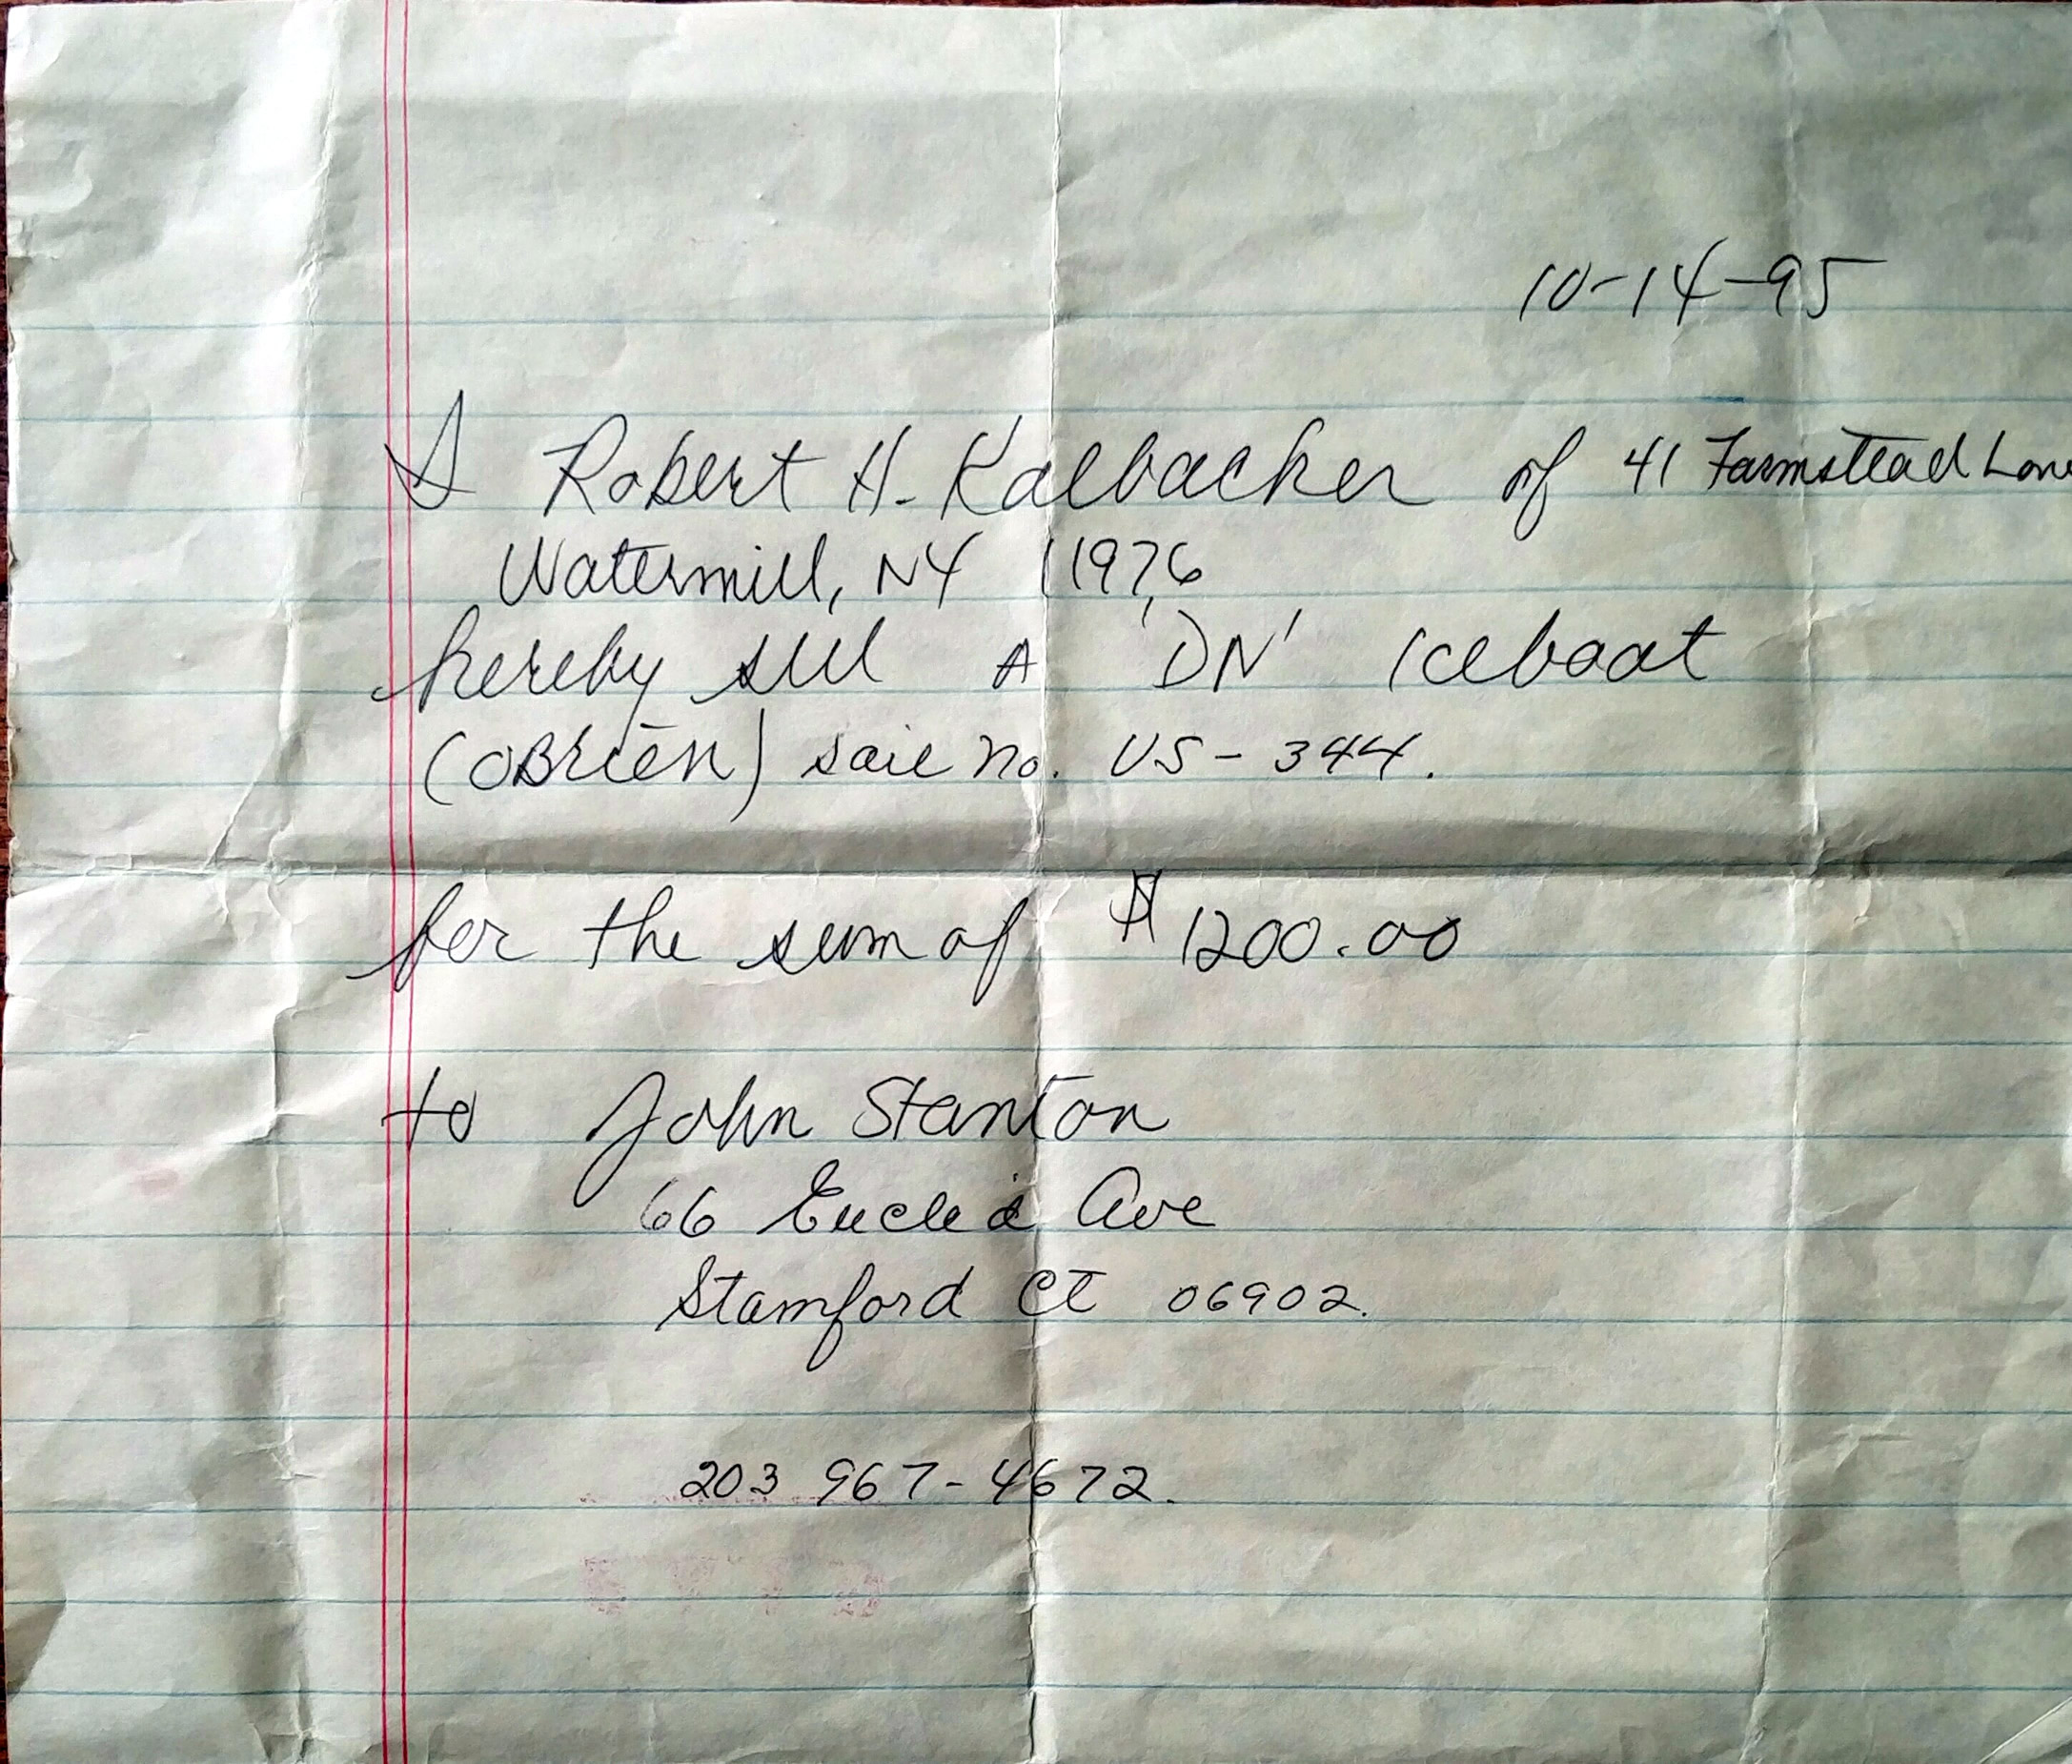 10-14-95
I Robert H. Kalbacker of 41 Farmstead Lane
Watermill, NY 11976
hereby sell A 'DN' Iceboat
(OBRIEN) sail no. US-344.
for the sum of $1200.00
to John Stanton
66 Euclid Ave
Stamford CT 06902.
203 967-4672.